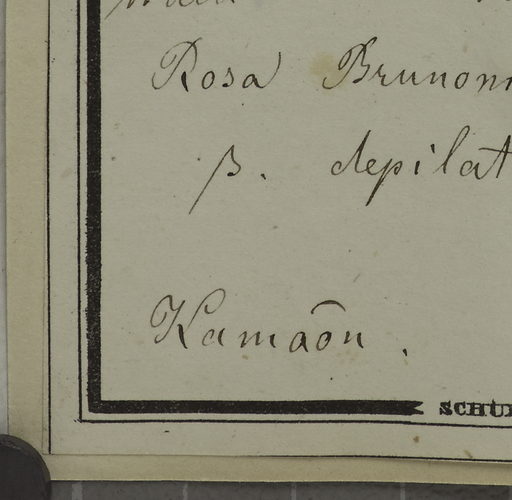 Rosa Brunon
β. depilat
Kamaōn.
SCHU